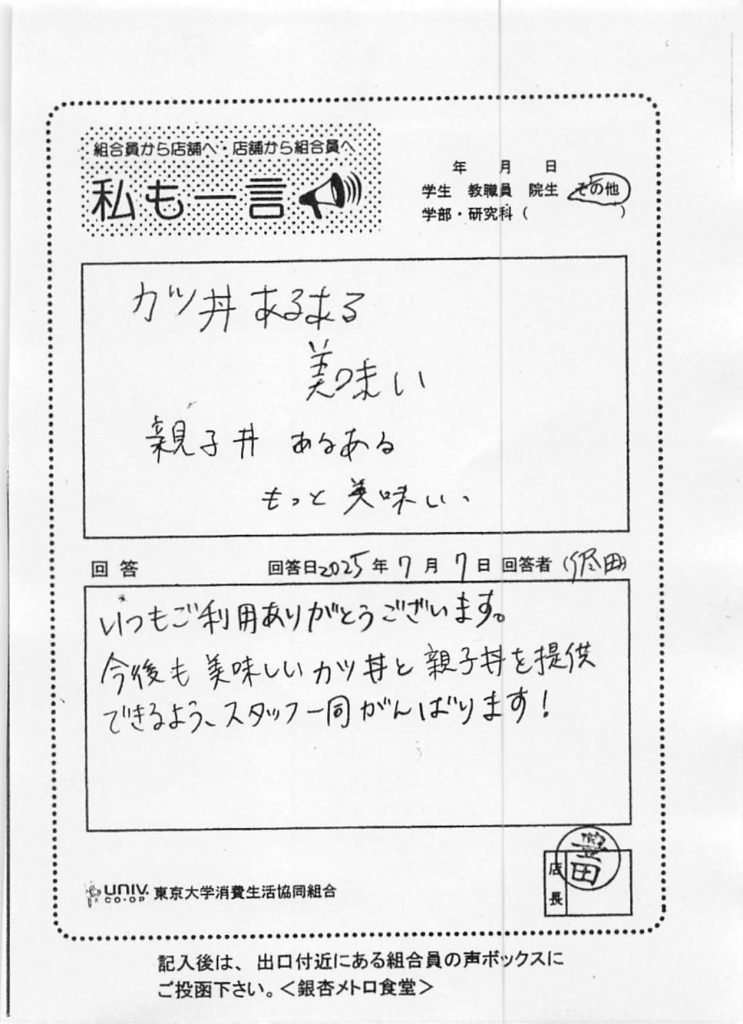 組合員から店舗へ・店舗から組合員へ
私も一言
年 月 日
学生 教職員 院生 その他
学部・研究科( )
カツ丼あるある
美味い
親子丼 あるある
もっと美味しい、
回答 回答日2025年7月7日 回答者( 田)
いつもご利用ありがとうございます。
今後も美味しいカツ丼と親子丼を提供
できるよう、スタッフ一同がんばります!
豊田
店長
UNIV. CO-OP 東京大学消費生活協同組合
記入後は、出口付近にある組合員の声ボックスに
ご投函下さい。<銀杏メトロ食堂>